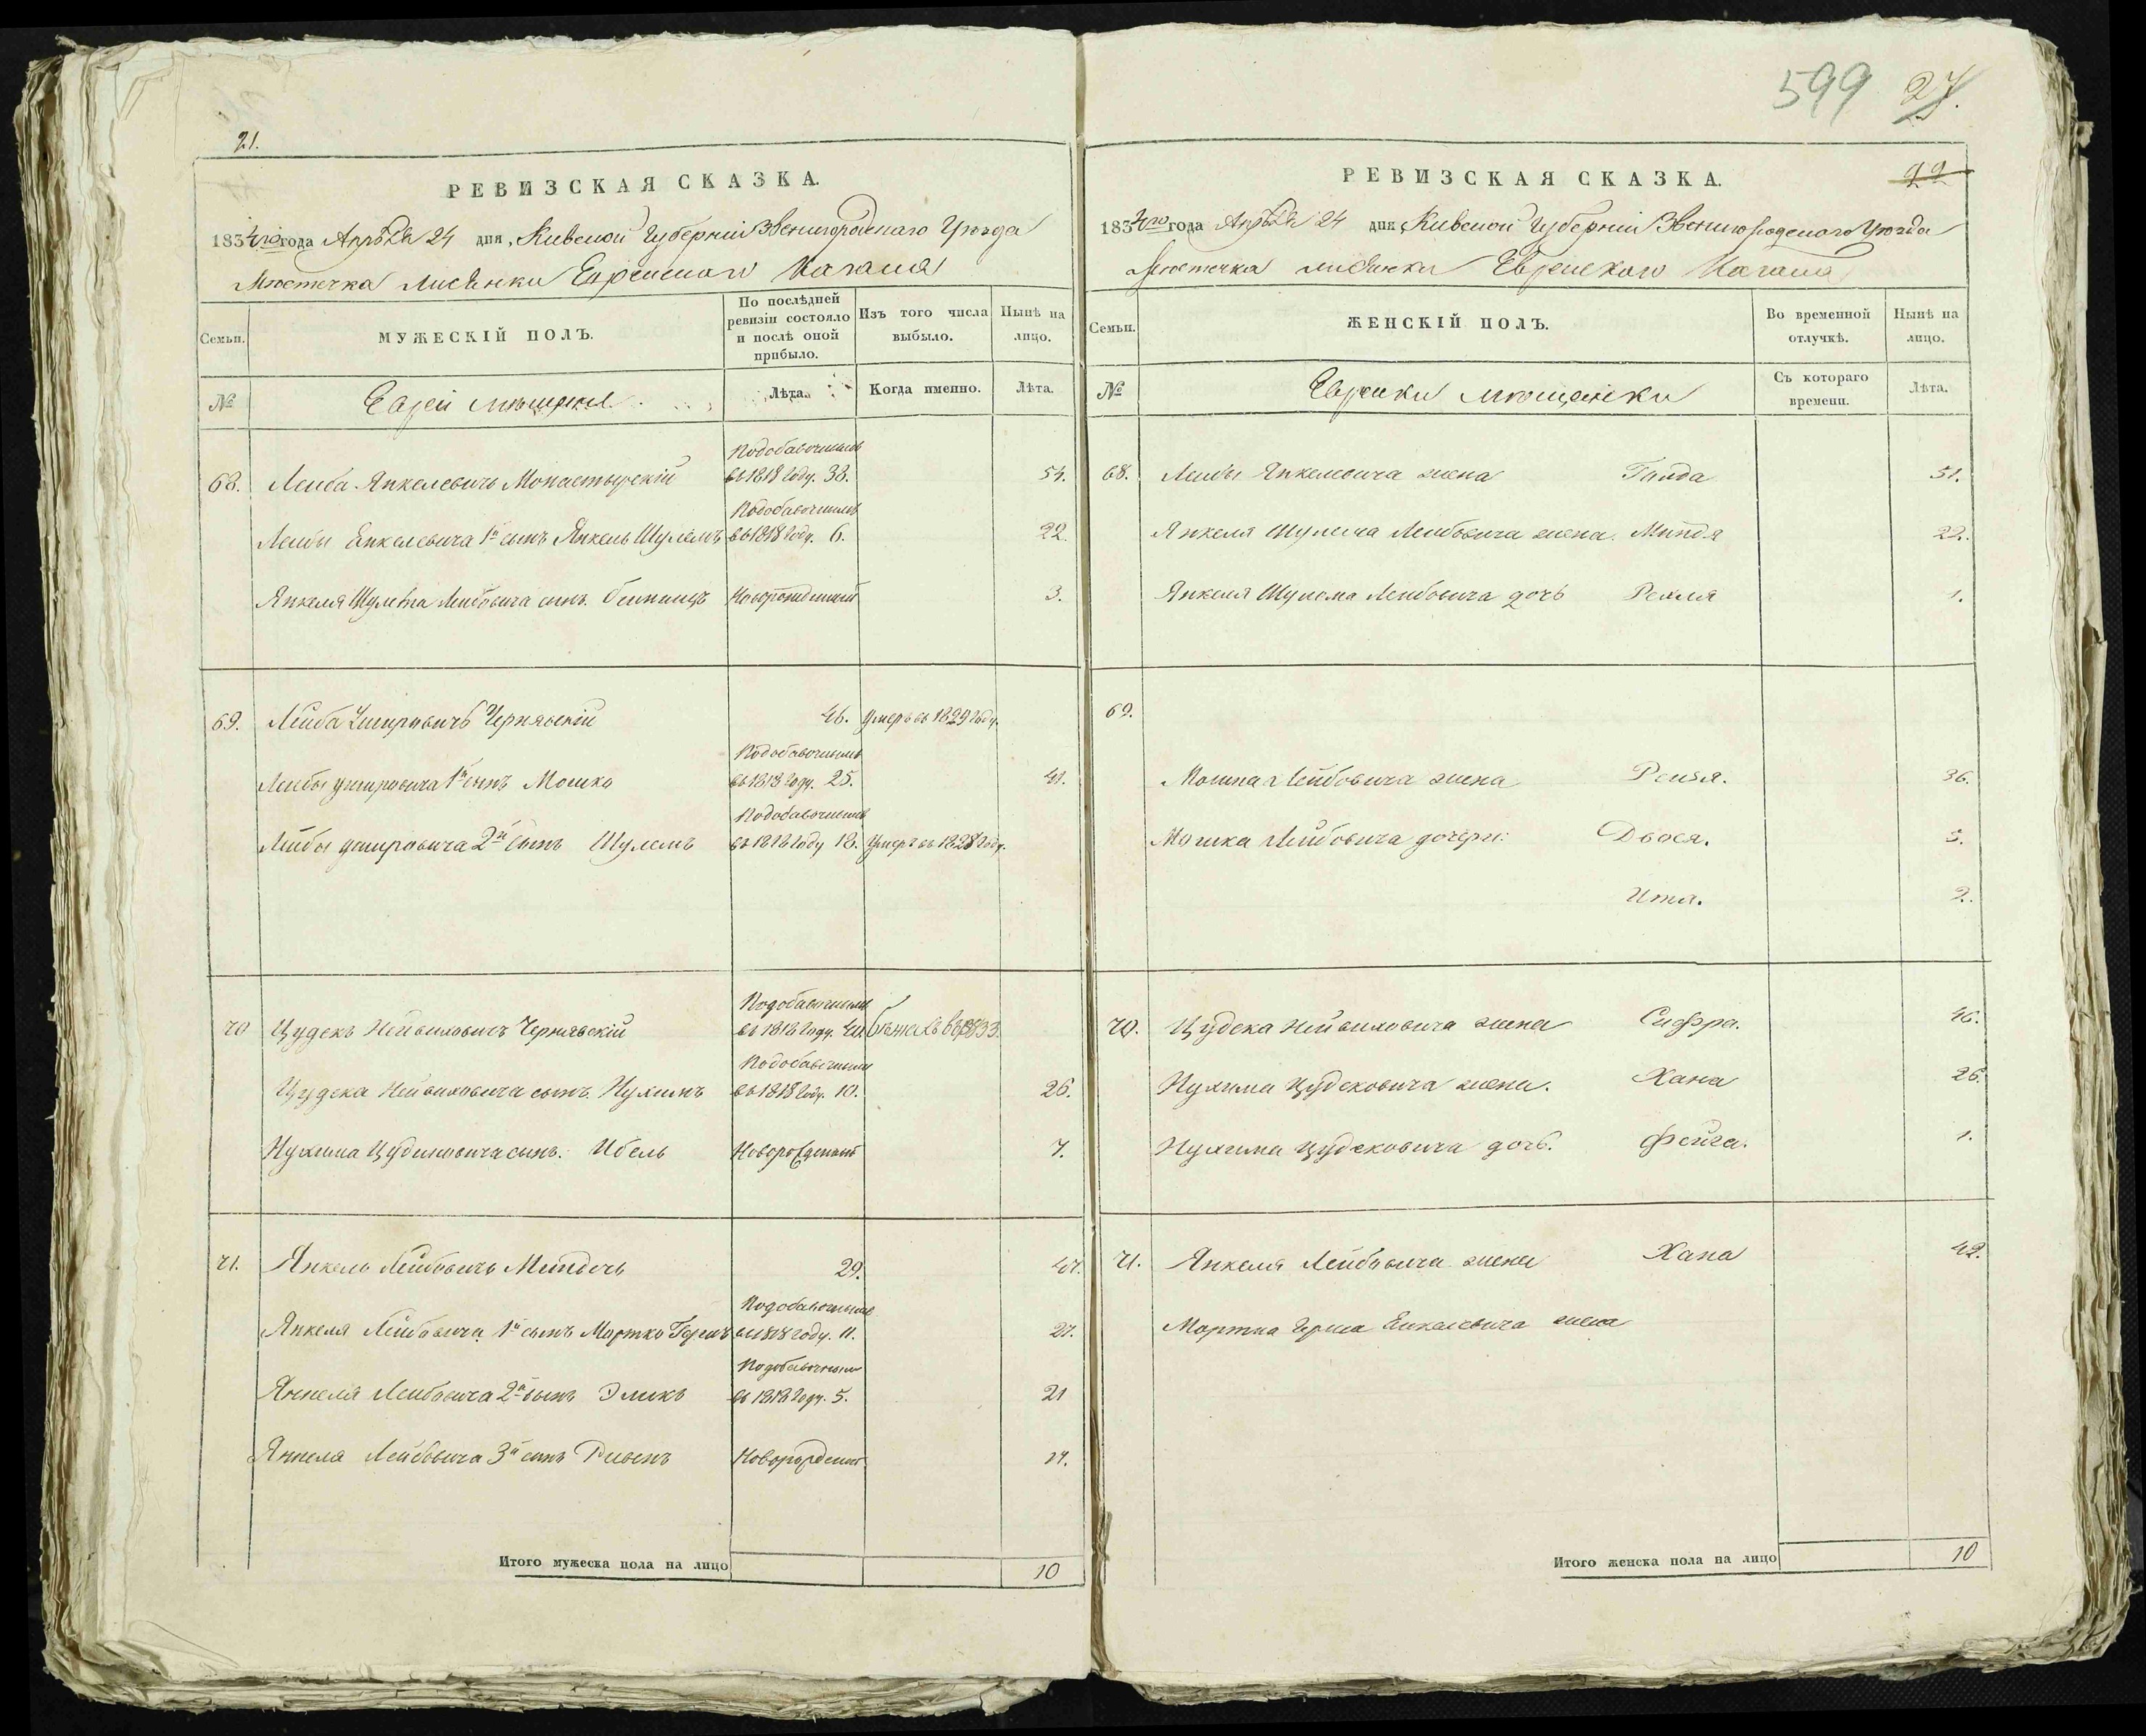 599 27.
21.
РЕВИЗСКАЯ СКАЗКА.
1834го года Апрѣля 24 дня, Кіевской Губерніи Звенигородскаго Уѣзда
Мѣстечка Лисянки Еврейскаго Кагала
Семьи.
МУЖЕСКІЙ ПОЛЪ.
По послѣдней ревизіи состояло и послѣ оной прибыло.
Изъ того числа выбыло.
Нынѣ на лицо.
№
Евреи мѣщане
Лѣта.
Когда именно.
Лѣта.
Подобавочнымъ
68. Лейба Янкелевичъ Монастырскій въ 1818 году. 38. 54.
Подобавочнымъ
Лейбы Енкелевича 1й сынъ Янкель Шулемъ въ 1818 году. 6. 22.
Янкеля Шулема Лейбовича сынъ. Новорожденный 3.
69. Лейба Чернявскій 46. умеръ въ 1829 году.
Подобавочнымъ
Лейбы 1й сынъ Мошко въ 1818 году. 25. 41.
Подобавочнымъ
Лейбы 2й сынъ Шулемъ въ 1818 году 18. умеръ въ 1828 году.
Подобавочнымъ
70 Цудекъ Чернявскій въ 1818 году. бѣжалъ въ 1833.
Подобавочнымъ
Цудека сынъ. Нухимъ въ 1818 году. 10. 26.
Нухима Цудиковича сынъ. Новорожденный 7.
71. Янкель Лейбовичъ 29. 47.
Подобавочнымъ
Янкеля Лейбовича 1й сынъ Мортко Гершъ въ 1818 году. 11. 27.
Подобавочнымъ
Янкеля Лейбовича 2й сынъ въ 1818 году. 5. 21
Янкеля Лейбовича 3й сынъ Новорожденный
Итого мужеска пола на лицо 10
22
РЕВИЗСКАЯ СКАЗКА.
1834го года Апрѣля 24 дня, Кіевской Губерніи Звенигородскаго Уѣзда
Мѣстечка Лисянки Еврейскаго Кагала
Семьи.
ЖЕНСКІЙ ПОЛЪ.
Во временной отлучкѣ.
Нынѣ на лицо.
№
Еврейки мѣщанки
Съ котораго времени.
Лѣта.
68. Лейбы Янкелевича жена 51.
Янкеля Шулема Лейбовича жена. Миндя 22.
Янкеля Шулема Лейбовича дочь 1.
69.
Мошка Лейбовича жена Рейзя. 36.
Мошка Лейбовича дочери: Двося. 5.
Итя. 2.
70. Цудека жена Сифра. 46.
Нухима Цудековича жена. Хана 26.
Нухима Цудековича дочь. Фейга. 1.
71. Янкеля Лейбовича жена Хана 42.
Мортка Герша Енкелевича жена
Итого женска пола на лицо 10